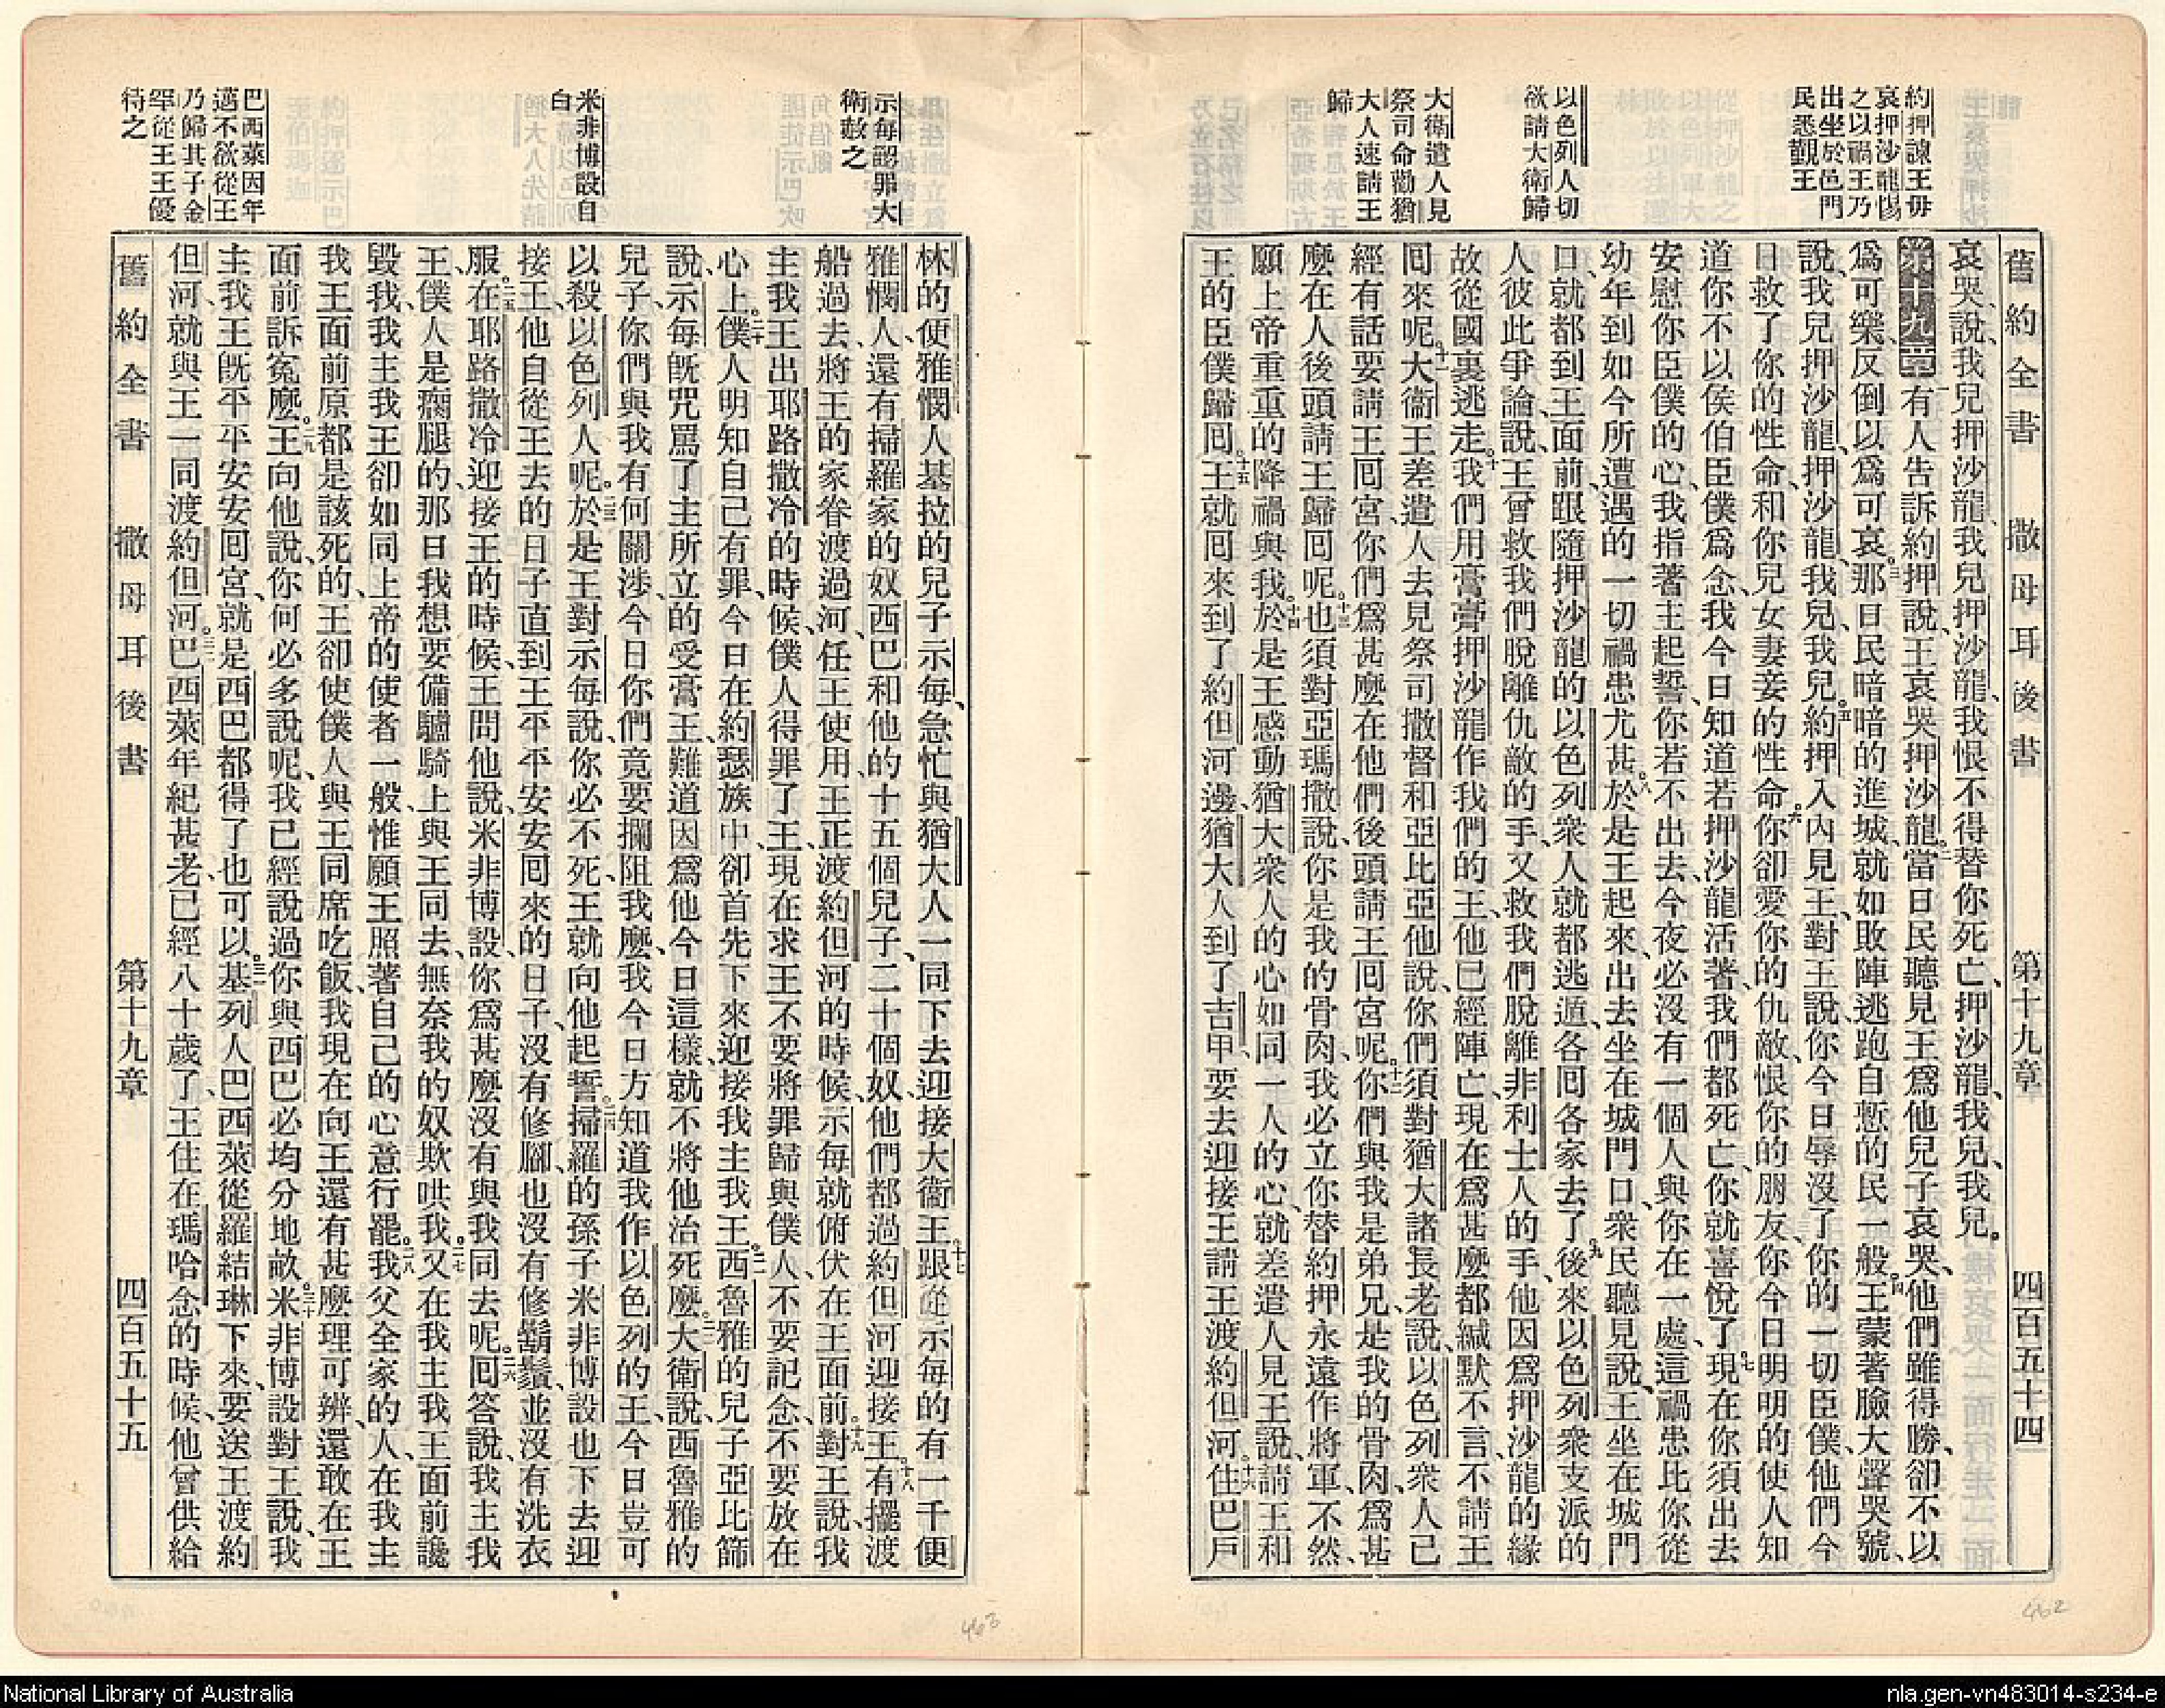 舊約全書 撒母耳後書 第十九章 四百五十四
約押諫王毋
哀押沙龍惕
之以禍王乃
出坐於邑門
民悉覲王
以色列人切
欲請大衛歸
大衛遣人見
祭司命勸猶
大人速請王
歸
哀哭、說、我兒押沙龍、我兒押沙龍、我恨不得替你死亡、押沙龍、我兒、我兒。
第十九章 一有人告訴約押說、王哀哭押沙龍。二當日民聽見王爲他兒子哀哭、他們雖得勝、卻不以
爲可樂、反倒以爲可哀。三那日民暗暗的進城、就如敗陣逃跑自慙的民一般。四王蒙著臉大聲哭號、
說、我兒押沙龍、押沙龍、我兒、我兒。五約押入內見王、對王說、你今日辱沒了你的一切臣僕、他們今
日救了你的性命、和你兒女妻妾的性命。六你卻愛你的仇敵、恨你的朋友、你今日明明的使人知
道你不以侯伯臣僕爲念、我今日知道若押沙龍活著、我們都死亡、你就喜悅了。七現在你須出去
安慰你臣僕的心、我指著主起誓、你若不出去、今夜必沒有一個人與你在一處、這禍患比你從
幼年到如今所遭遇的一切禍患尤甚。八於是王起來、出去坐在城門口、衆民聽見說、王坐在城門
口、就都到王面前、跟隨押沙龍的以色列衆人就都逃遁、各囘各家去了。九後來以色列衆支派的
人彼此爭論、說、王曾救我們脫離仇敵的手、又救我們脫離非利士人的手、他因爲押沙龍的緣
故從國裏逃走。十我們用膏膏押沙龍作我們的王、他已經陣亡、現在爲甚麼都緘默不言、不請王
囘來呢。十一大衞王差遣人去見祭司撒督和亞比亞他說、你們須對猶大諸長老說、以色列衆人已
經有話要請王囘宮、你們爲甚麼在他們後頭請王囘宮呢。十二你們與我是弟兄、是我的骨肉、爲甚
麼在人後頭請王歸囘呢。十三也須對亞瑪撒說、你是我的骨肉、我必立你替約押永遠作將軍、不然、
願上帝重重的降禍與我。十四於是王感動猶大衆人的心、如同一人的心、就差遣人見王說、請王和
王的臣僕歸囘。十五王就囘來到了約但河邊、猶大人到了吉甲、要去迎接王、請王渡約但河。十六住巴戶
示每認罪大
衛赦之
米非博設自
白
巴西萊因年
邁不欲從王
乃歸其子金
罕從王王優
待之
林的便雅憫人基拉的兒子示每、急忙與猶大人一同下去迎接大衞王。十七跟從示每的有一千便
雅憫人、還有掃羅家的奴西巴和他的十五個兒子、二十個奴、他們都過約但河迎接王。十八有擺渡
船過去、將王的家眷渡過河、任王使用、王正渡約但河的時候、示每就俯伏在王面前。十九對王說、我
主我王出耶路撒冷的時候、僕人得罪了王、現在求王不要將罪歸與僕人、不要記念、不要放在
心上。二十僕人明知自己有罪、今日在約瑟族中、卻首先下來迎接我主我王。二一西魯雅的兒子亞比篩
說、示每旣咒罵了主所立的受膏王、難道因爲他今日這樣、就不將他治死麼。二二大衛說、西魯雅的
兒子、你們與我有何關涉、今日你們竟要攔阻我麼、我今日方知道我作以色列的王、今日豈可
以殺以色列人呢。二三於是王對示每說、你必不死、王就向他起誓。二四掃羅的孫子米非博設也下去迎
接王、他自從王去的日子直到王平平安安囘來的日子、沒有修腳、也沒有修鬍鬚、並沒有洗衣
服。二五在耶路撒冷迎接王的時候、王問他說、米非博設、你爲甚麼沒有與我同去呢。二六囘答說、我主我
王、僕人是瘸腿的、那日我想要備驢騎上與王同去、無奈我的奴欺哄我。二七又在我主我王面前讒
毀我、我主我王卻如同上帝的使者一般、惟願王照著自己的心意行罷。二八我父全家的人、在我主
我王面前原都是該死的、王卻使僕人與王同席吃飯、我現在向王還有甚麼理可辨、還敢在王
面前訴寃麼。二九王向他說、你何必多說呢、我已經說過、你與西巴必均分地畝。三十米非博設對王說、我
主我王旣平平安安囘宮、就是西巴都得了也可以。三一基列人巴西萊從羅結琳下來、要送王渡約
但河、就與王一同渡約但河。三二巴西萊年紀甚老、已經八十歲了、王住在瑪哈念的時候、他曾供給
舊約全書 撒母耳後書 第十九章 四百五十五
462
463
National Library of Australia
nla.gen-vn483014-s234-e